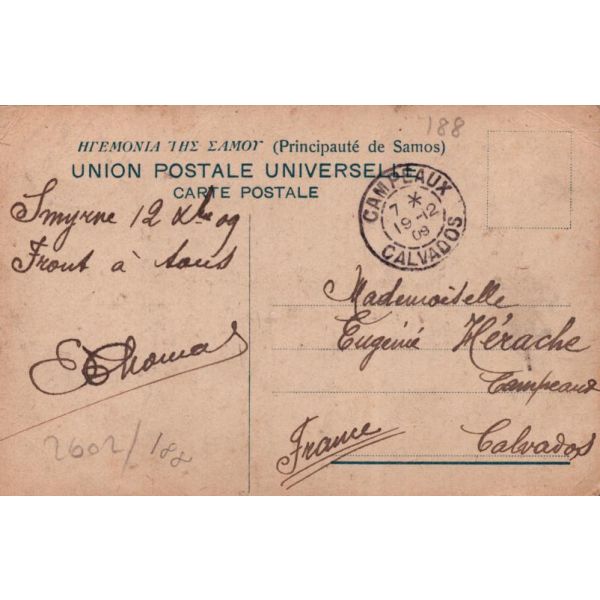 188
ΗΓΕΜΟΝΙΑ ΤΗΣ ΣΑΜΟΥ (Principauté de Samos)
UNION POSTALE UNIVERSELLE
CARTE POSTALE
CAMPEAUX
7 *
19-12
09
CALVADOS
Smyrne 12 Xbre 09
Front à tous
EThomas
2602/188
Mademoiselle
Eugénie Hérache
Campeaux
Calvados
France